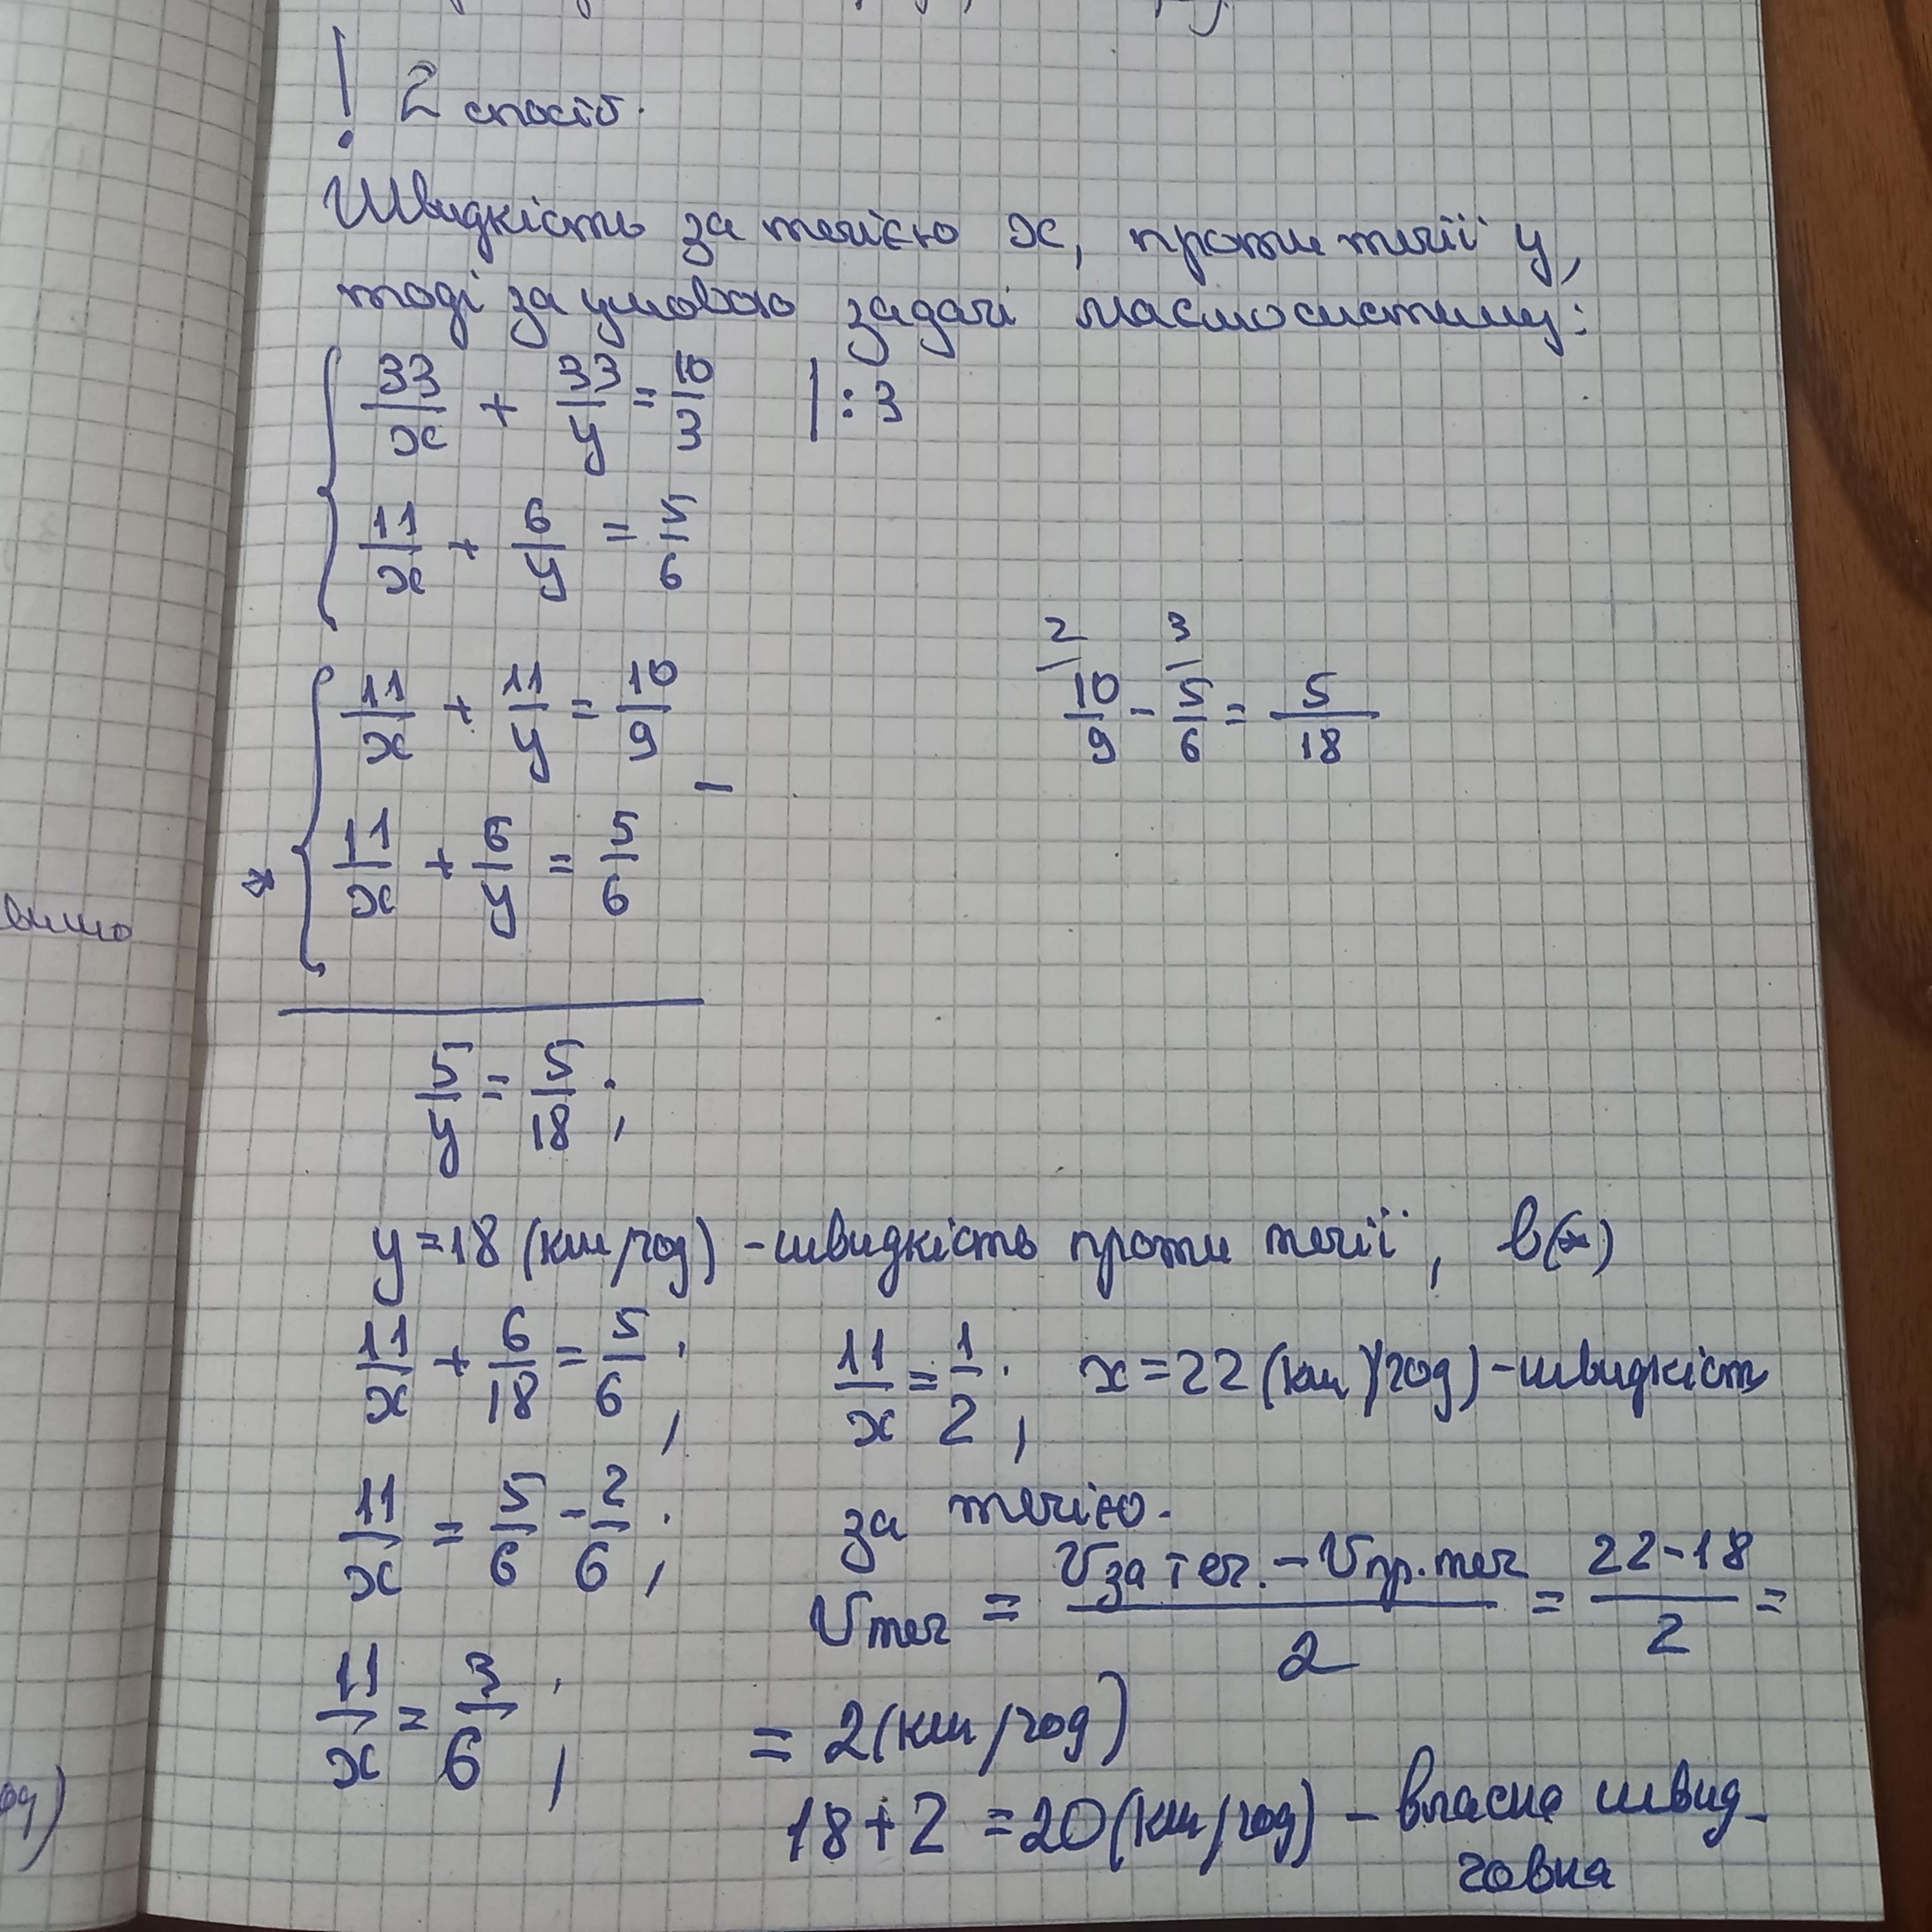 ! 2 спосіб.
Швидкість за течією x, проти течії y,
тоді за умовою задачі маємо систему:
33/x + 33/y = 10/3 | :3
11/x + 6/y = 5/6
11/x + 11/y = 10/9
−
⇔ 11/x + 6/y = 5/6
2 3
10/9 - 5/6 = 5/18
5/y = 5/18 ;
y = 18 (км/год) - швидкість проти течії,
11/x + 6/18 = 5/6 ;
11/x = 5/6 - 2/6 ;
11/x = 3/6 ;
11/x = 1/2 ; x = 22 (км/год) - швидкість
за течією.
Vтеч = (Vза теч. - Vпр. теч)/2 = (22-18)/2 =
= 2 (км/год)
18 + 2 = 20 (км/год) - власна швид-
човна
вишо
од)